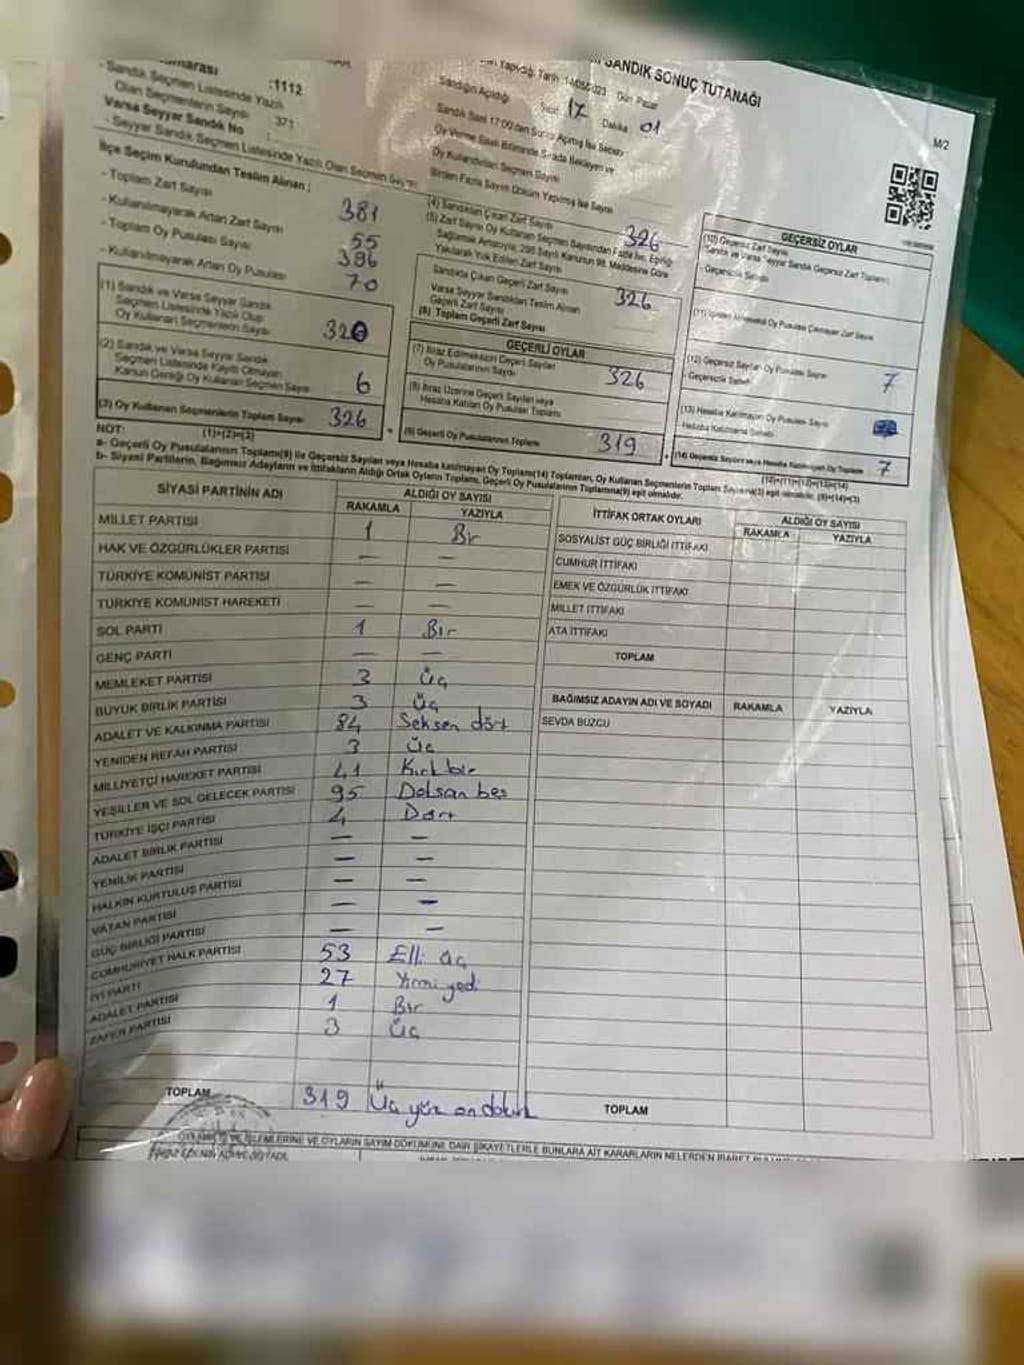 SANDIK SONUÇ TUTANAĞI
M/2
:1112
- Sandık Seçmen Listesinde Yazılı
Olan Seçmenlerin Sayısı : 371
Varsa Seyyar Sandık No :
- Seyyar Sandık Seçmen Listesinde Yazılı Olan Seçmen Sayısı
Tarih Gün Pazar
Sandığın Açıldığı Saat 17 Dakika 01
Sandık Saat 17:00'den Sonra Açılmış İse Sebebi
Oy Verme Saati Bitiminde Sırada Bekleyen ve
Oy Kullandırılan Seçmen Sayısı
Birden Fazla Sayım Döküm Yapılmış İse Sayısı
İlçe Seçim Kurulundan Teslim Alınan ;
- Toplam Zarf Sayısı 381
- Kullanılmayarak Artan Zarf Sayısı 55
- Toplam Oy Pusulası Sayısı 396
- Kullanılmayarak Artan Oy Pusulası 70
(1) Sandık ve Varsa Seyyar Sandık
Seçmen Listesinde Yazılı Olup
Oy Kullanan Seçmenlerin Sayısı 320
(2) Sandık ve Varsa Seyyar Sandık
Seçmen Listesinde Kayıtlı Olmayan
Kanun Gereği Oy Kullanan Seçmen Sayısı 6
(3) Oy Kullanan Seçmenlerin Toplam Sayısı 326
(1)+(2)=(3)
(4) Sandıktan Çıkan Zarf Sayısı 326
(5) Zarf Sayısı Oy Kullanan Seçmen Sayısından Fazla İse, Eşitliği
Sağlamak Amacıyla, 298 Sayılı Kanunun 98. Maddesine Göre
Yakılarak Yok Edilen Zarf Sayısı
Sandıkta Çıkan Geçerli Zarf Sayısı 326
Varsa Seyyar Sandıktan Teslim Alınan
Geçerli Zarf Sayısı
(6) Toplam Geçerli Zarf Sayısı
GEÇERLİ OYLAR
(7) İtiraz Edilmeksizin Geçerli Sayılan
Oy Pusulalarının Sayısı 326
(8) İtiraz Üzerine Geçerli Sayılan veya
Hesaba Katılan Oy Pusulası Toplamı
(9) Geçerli Oy Pusulalarının Toplamı 319
GEÇERSİZ OYLAR
(10) Geçersiz Zarf Sayısı
Sandık ve Varsa Seyyar Sandık Geçersiz Zarf Toplamı
- Geçersizlik Sebebi
(12) Geçersiz Sayılan Oy Pusulası Sayısı 7
- Geçersizlik Sebebi
(13) Hesaba Katılmayan Oy Pusulası Sayısı
- Hesaba Katılmama Sebebi
(14) Geçersiz Sayılan veya Hesaba Katılmayan Oy Toplamı 7
(10)+(11)+(12)+(13)=(14)
NOT:
a- Geçerli Oy Pusulalarının Toplamı(9) ile Geçersiz Sayılan veya Hesaba Katılmayan Oy Toplamı(14) Toplamları, Oy Kullanan Seçmenlerin Toplam Sayısına(3) eşit olmalıdır. (9)+(14)=(3)
b- Siyasi Partilerin, Bağımsız Adayların ve İttifakların Aldığı Ortak Oyların Toplamı, Geçerli Oy Pusulalarının Toplamına(9) eşit olmalıdır.
SİYASİ PARTİNİN ADI ALDIĞI OY SAYISI
RAKAMLA YAZIYLA
MİLLET PARTİSİ 1 Bir
HAK VE ÖZGÜRLÜKLER PARTİSİ — —
TÜRKİYE KOMÜNİST PARTİSİ — —
TÜRKİYE KOMÜNİST HAREKETİ — —
SOL PARTİ 1 Bir
GENÇ PARTİ — —
MEMLEKET PARTİSİ 3 Üç
BÜYÜK BİRLİK PARTİSİ 3 Üç
ADALET VE KALKINMA PARTİSİ 84 Seksen dört
YENİDEN REFAH PARTİSİ 3 Üç
MİLLİYETÇİ HAREKET PARTİSİ 41 Kırk bir
YEŞİLLER VE SOL GELECEK PARTİSİ 95 Doksan beş
TÜRKİYE İŞÇİ PARTİSİ 4 Dört
ADALET BİRLİK PARTİSİ — —
YENİLİK PARTİSİ — —
HALKIN KURTULUŞ PARTİSİ — —
VATAN PARTİSİ — —
GÜÇ BİRLİĞİ PARTİSİ — —
CUMHURİYET HALK PARTİSİ 53 Elli üç
İYİ PARTİ 27 Yirmi yedi
ADALET PARTİSİ 1 Bir
ZAFER PARTİSİ 3 Üç
TOPLAM 319 Üç yüz on dokuz
İTTİFAK ORTAK OYLARI ALDIĞI OY SAYISI
RAKAMLA YAZIYLA
SOSYALİST GÜÇ BİRLİĞİ İTTİFAKI
CUMHUR İTTİFAKI
EMEK VE ÖZGÜRLÜK İTTİFAKI
MİLLET İTTİFAKI
ATA İTTİFAKI
TOPLAM
BAĞIMSIZ ADAYIN ADI VE SOYADI RAKAMLA YAZIYLA
SEVDA BUZCU
TOPLAM
İŞLEMLERİNE VE OYLARIN SAYIM DÖKÜMÜNE DAİR ŞİKAYETLERLE BUNLARA AİT KARARLARIN NELERDEN İBARET